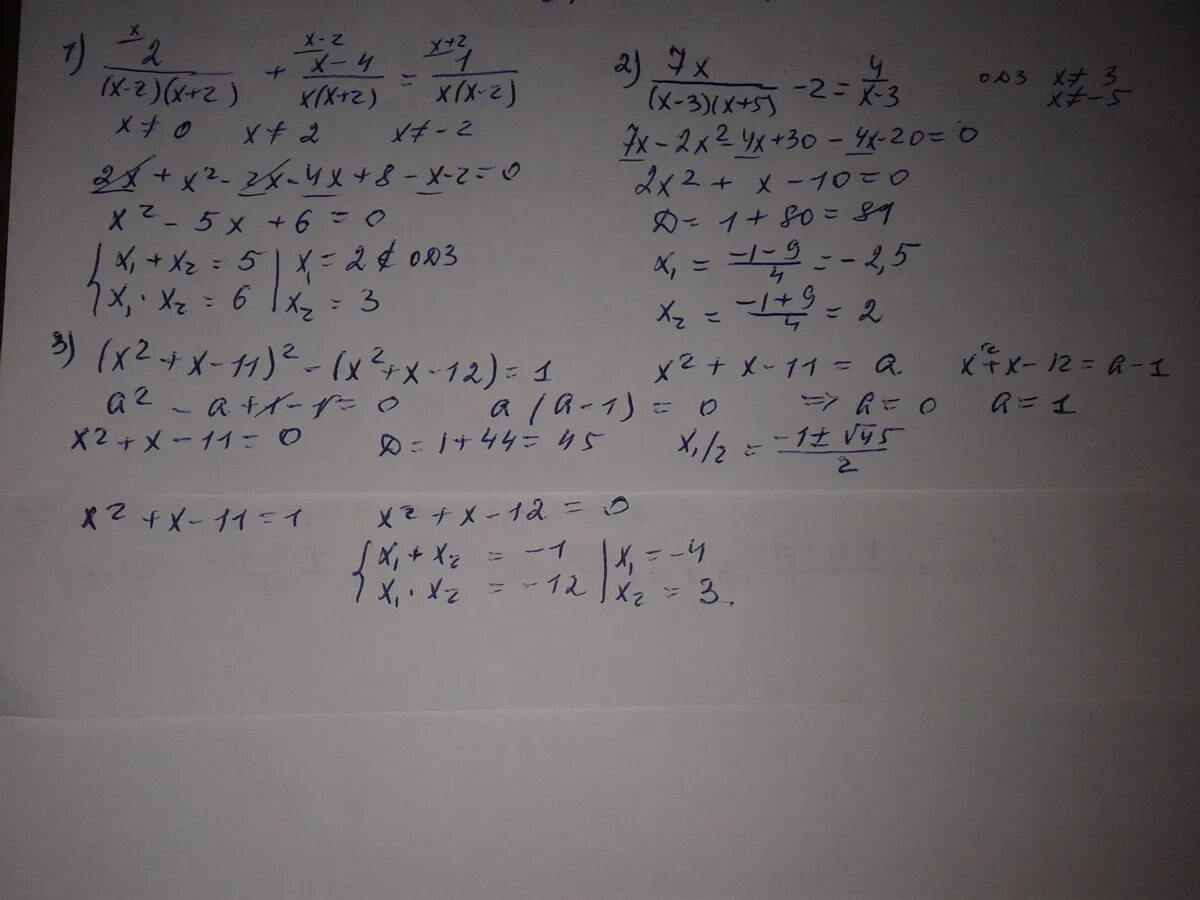 1) x 2/((x-2)(x+2)) + x-2 (x-4)/(x(x+2)) = x+2 1/(x(x-2))
x ≠ 0 x ≠ 2 x ≠ -2
2x + x² - 2x - 4x + 8 - x - 2 = 0
x² - 5x + 6 = 0
{ x₁ + x₂ = 5 | x₁ = 2 ∉ ОДЗ
x₁ · x₂ = 6 | x₂ = 3
2) 7x/((x-3)(x+5)) - 2 = 4/(x-3) ОДЗ x ≠ 3
x ≠ -5
7x - 2x² - 4x + 30 - 4x - 20 = 0
2x² + x - 10 = 0
D = 1 + 80 = 81
x₁ = (-1-9)/4 = -2,5
x₂ = (-1+9)/4 = 2
3) (x² + x - 11)² - (x² + x - 12) = 1 x² + x - 11 = a x² + x - 12 = a - 1
a² - a + 1 - 1 = 0 a (a - 1) = 0 => a = 0 a = 1
x² + x - 11 = 0 D = 1 + 44 = 45 x₁/₂ = (-1 ± √45)/2
x² + x - 11 = 1 x² + x - 12 = 0
{ x₁ + x₂ = -1 | x₁ = -4
x₁ · x₂ = -12 | x₂ = 3.